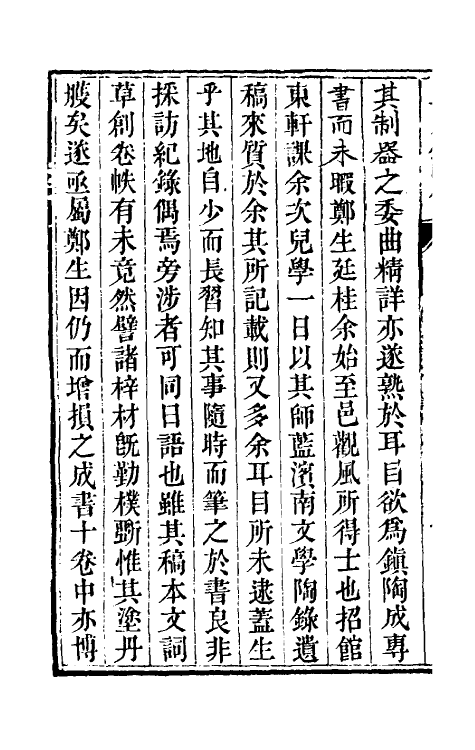 其制器之委曲精詳亦遂熟於耳目欲爲鎭陶成專
書而未暇鄭生廷桂余始至邑觀風所得士也招館
東軒課余次兒學一日以其師藍濱南文學陶錄遺
稿來質於余其所記載則又多余耳目所未逮蓋生
乎其地自少而長習知其事隨時而筆之於書良非
採訪紀錄偶焉旁涉者可同日語也雖其稿本文詞
草創卷帙有未竟然譬諸梓材旣勤樸斲惟其塗丹
雘矣遂亟屬鄭生因仍而增損之成書十卷中亦博